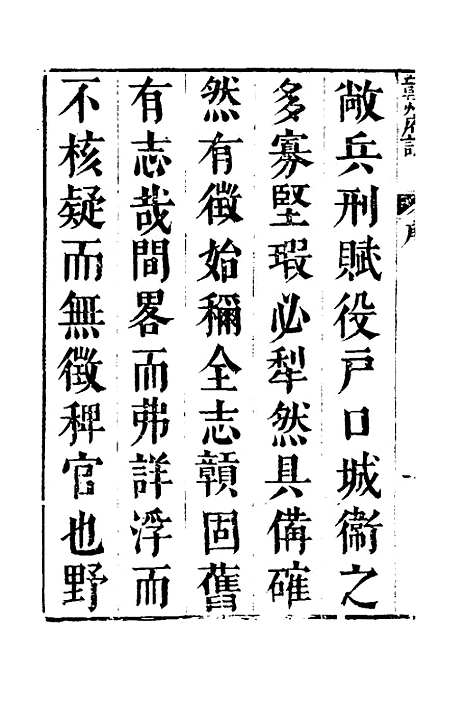 敞兵刑賦役戸口城衞之
多寡堅瑕必犁然具備確
然有徵始稱全志贛固舊
有志哉間畧而弗詳浮而
不核疑而無徵稗官也野